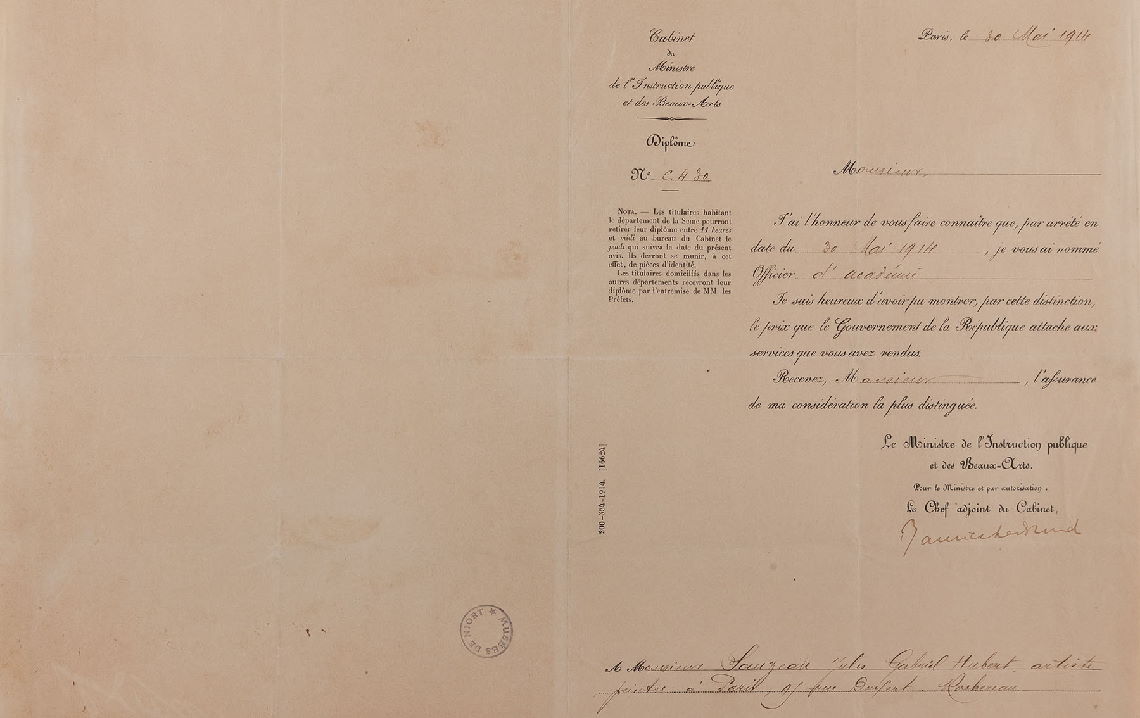 Cabinet
du
Ministre
de l'Instruction publique
et des Beaux-Arts
Diplôme
Nº
Nota. — Les titulaires habitant
le département de la Seine pourront
retirer leur diplôme entre 11 heures
et midi au bureau du Cabinet le
jeudi qui suivra la date du présent
avis. Ils devront se munir, à cet
effet, de pièces d'identité.
Les titulaires domiciliés dans les
autres départements recevront leur
diplôme par l'entremise de MM. les
Préfets.
Paris, le 30 Mai 1914
Monsieur,
J'ai l'honneur de vous faire connaître que, par arrêté en
date du 30 Mai 1914, je vous ai nommé
Officier d'académie
Je suis heureux d'avoir pu montrer, par cette distinction,
le prix que le Gouvernement de la République attache aux
services que vous avez rendus.
Recevez, Monsieur, l'assurance
de ma considération la plus distinguée.
Le Ministre de l'Instruction publique
et des Beaux-Arts.
Pour le Ministre et par autorisation.
Le Chef adjoint du Cabinet,
A Monsieur Sauzeau Jules Gabriel Hubert artiste
peintre à Paris, rue Denfert Rochereau
MUSÉES DE NIORT